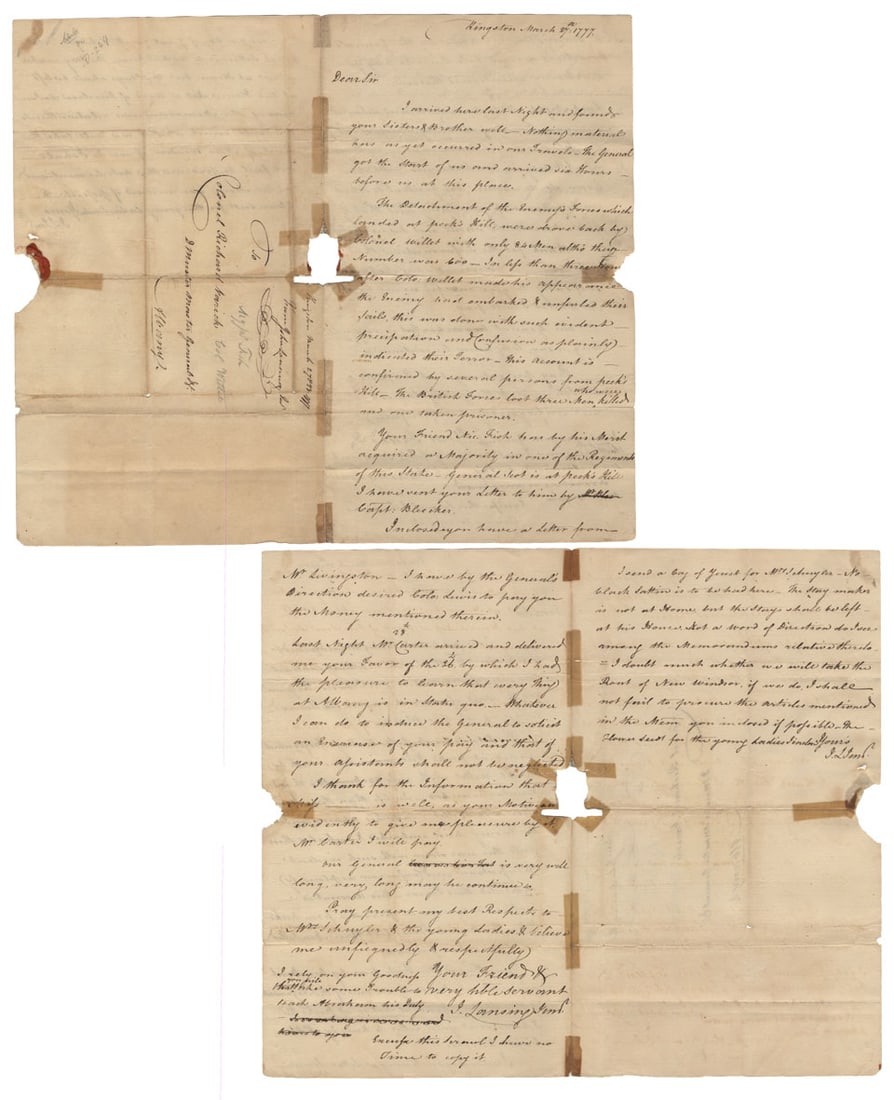 Kingston March 27th 1777.
Dear Sir
I arrived here last Night and found
your Sisters & Brother well – Nothing material
has as yet occurred in our Travels – the General
got the Start of us and arrived six Hours
before us at this place.
The Detachment of the Enemy's Forces which
landed at peek's Kill, were drove back by
Colonel Willet with only 84 Men altho their
Number was 600 – In less than three
after Colo. Willet made his appearance
the Enemy had embarked & unfurled their
Sails, this was done with such evident
precipitation and Confusion as plainly
indicated their Terror – this Account is
confirmed by several persons from peek's
Kill – The British Forces lost three Men who were killed
and one taken prisoner.
Your Friend Nic. Fish has by his Merit
acquired a Majority in one of the Regiments
of this State – General Scot is at peek's Kill
I have sent your Letter to him by
Capt: Bleecker.
Inclosed you have a Letter from
To
Colonel Richard Varick
D Muster Master General &c.
Albany
Majr. Fish
Col Willet
Kingston March 27th 1777
From John Lansing Jr
Mr. Livingston – I have by the General's
Direction desired Colo. Lewis to pay you
the Money mentioned therein.
Last Night Mr. Carter arrived and delivered
me your Favor of the by which I had
the pleasure to learn that every Thing
at Albany is in Statu quo – Whatever
I can do to induce the General to solicit
an Encrease of your pay and that of
your Assistants shall not be neglected
I thank for the Information that
is well, as your Motive was
evidently to give me pleasure by it
Mr. Carter I will pay
our General is very well
long, very long may he continue so
Pray present my best Respects to
Mrs. Schuyler & the young Ladies & believe
me unfeignedly & respectfully
Your Friend &
very hble Servant
J. Lansing Junr
I rely on your Goodness
that you will take some Trouble to
teach Abraham his Duty
Excuse this Scrawl I have no
Time to copy it
I send a bag of Yeust for Mrs. Schuyler – No
black Sattin is to be had here – The Stay maker
is not at Home but the Stays shall be left
at his House. Not a word of Direction do I see
among the Memorandums relative thereto
– I doubt much whether we will take the
Rout of New Windsor, if we do, I shall
not fail to procure the articles mentioned
in the Mem. you inclosed if possible the
flower seeds for the young Ladies Yours
J. L Junr